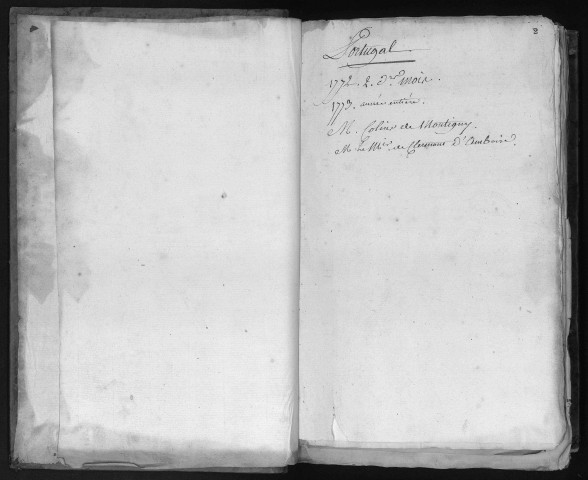 2
Portugal.
1772. 2. drs mois.
1773. année entière.
M. Colins de Montigny.
M. le Mis. de Clermont d'Amboise.